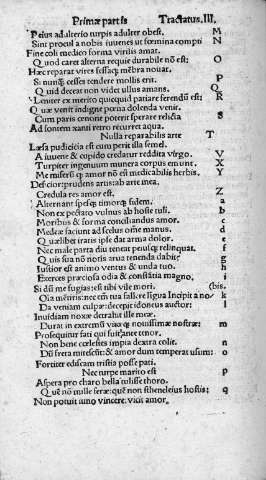 Primæ partis Tractatus.III.
Peius adulterio turpis adulter obest. M
Sint procul a nobis iuvenes ut fœmina compti N
Fine coli medico forma virilis amat.
Quod caret alterna requie durabile nõ est: O
Hæc reparat vires fessaq; mẽbra nouat. P
Si nunq̃ cesses tendere mollis erit. P
Quid deceat non videt ullus amans. Q
Leniter ex merito quicquid patiare ferendũ est: R
Quæ venit indigne pœna dolenda venit.
Cum paris œnone poterit spirare relicta S
Ad fontem xanti retro recurret aqua.
Nulla reparabilis arte T
Læsa pudicitia est cum perit illa semel.
A iuuene & cupido credatur reddita virgo. V
Turpiter ingenuum munera corpus emunt. X
Me miserũ q; amor nõ est medicabilis herbis. Y
Deficior prudens artis ab arte mea. Z
Credula res amor est.
Alternant spesq; timorq; fidem. a
Non expectato vulnus ab hoste tuli. b
Moribus & forma conciliandus amor. c
Medeæ faciunt ad scelus omẽ manus. d
Quallibet iratis ipse dat arma dolor. e
Nec male parta diu tenent pensuq; relinquat. f
Quis sua nõ noris arua tenenda dabit; g
Iustior est animo ventus & unda tuo. h
Exerces præciosa odia & constãtia magno, i
Si dũ me fugias: est tibi vile mori. (bis.
Oia mẽtiris: nec em̃ tua fallere ligua Incipit a no k
Da veniam culpæ: decepit idoneus auctor: l
Inuidiam noxæ detrahit ille meæ.
Durat in extremũ vitaq; nouissimæ nostræ: m
Prosequitur fati qui fuit ante tenor.
Non bene cœlestes impia dextra colit. n
Dũ freta mitescũt: & amor dum temperat usum: o
Fortiter ediscam tristia posse pati.
Nec turpe marito est p
Aspera pro charo bella tulisse thoro.
Quẽ nõ mille feræ: quem nõ stheneleius hostis: q
Non potuit iuno vincere: vicit amor.